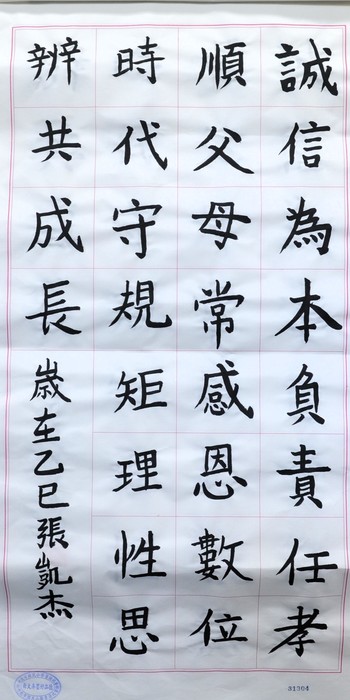 誠信為本負責任孝
順父母常感恩數位
時代守規矩理性思
辨共成長
歲在乙巳張凱杰
31304